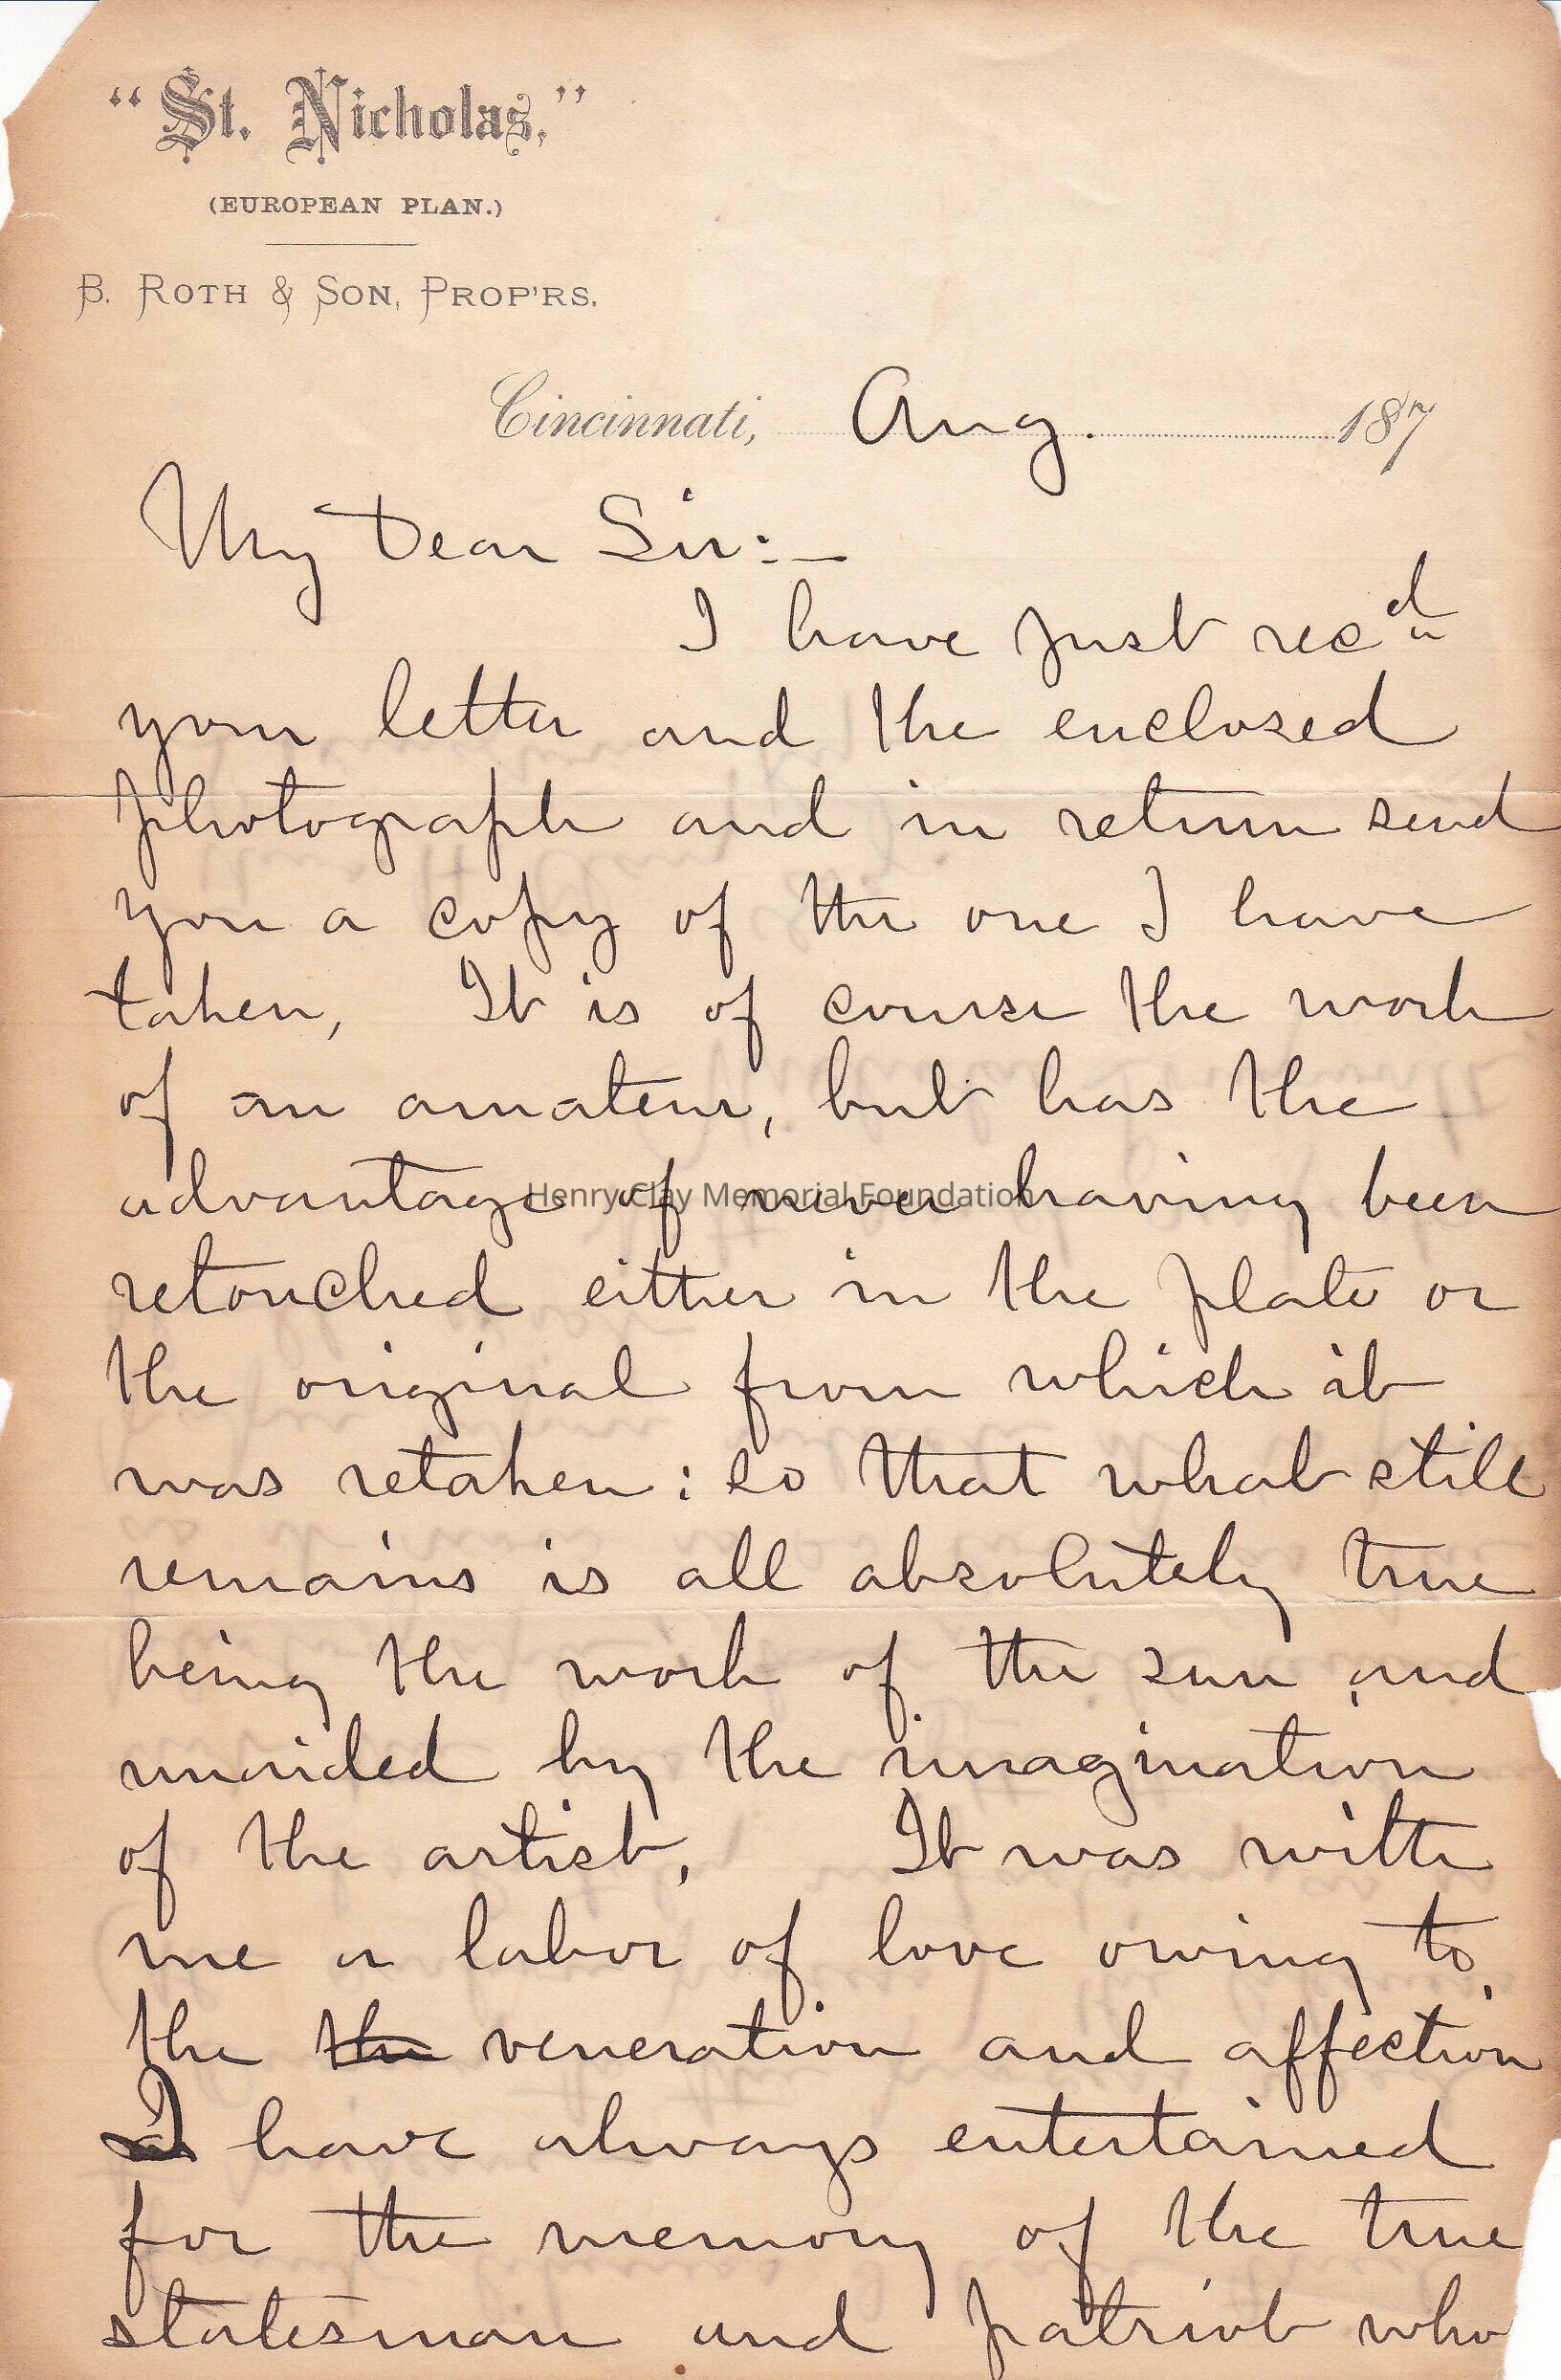 "St. Nicholas,"
(EUROPEAN PLAN.)
B. ROTH & SON, PROP'RS.
Cincinnati, Aug. 187
My Dear Sir:—
I have just rec'd
your letter and the enclosed
photograph and in return send
you a copy of the one I have
taken, It is of course the work
of an amateur, but has the
advantage of never having been
Henry Clay Memorial Foundation
retouched either in the plate or
the original from which it
was retaken: so that what still
remains is all absolutely true
being the work of the sun and
unaided by the imagination
of the artist, It was with
me a labor of love owing to,
the the veneration and affection
I have always entertained
for the memory of the true
statesman and patriot who